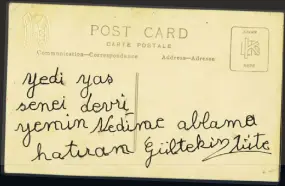 POST CARD
CARTE POSTALE
Communication—Correspondance Address—Adresse
yedi yas
senei devri
yemin Nedime ablama
hatıram Gültekin